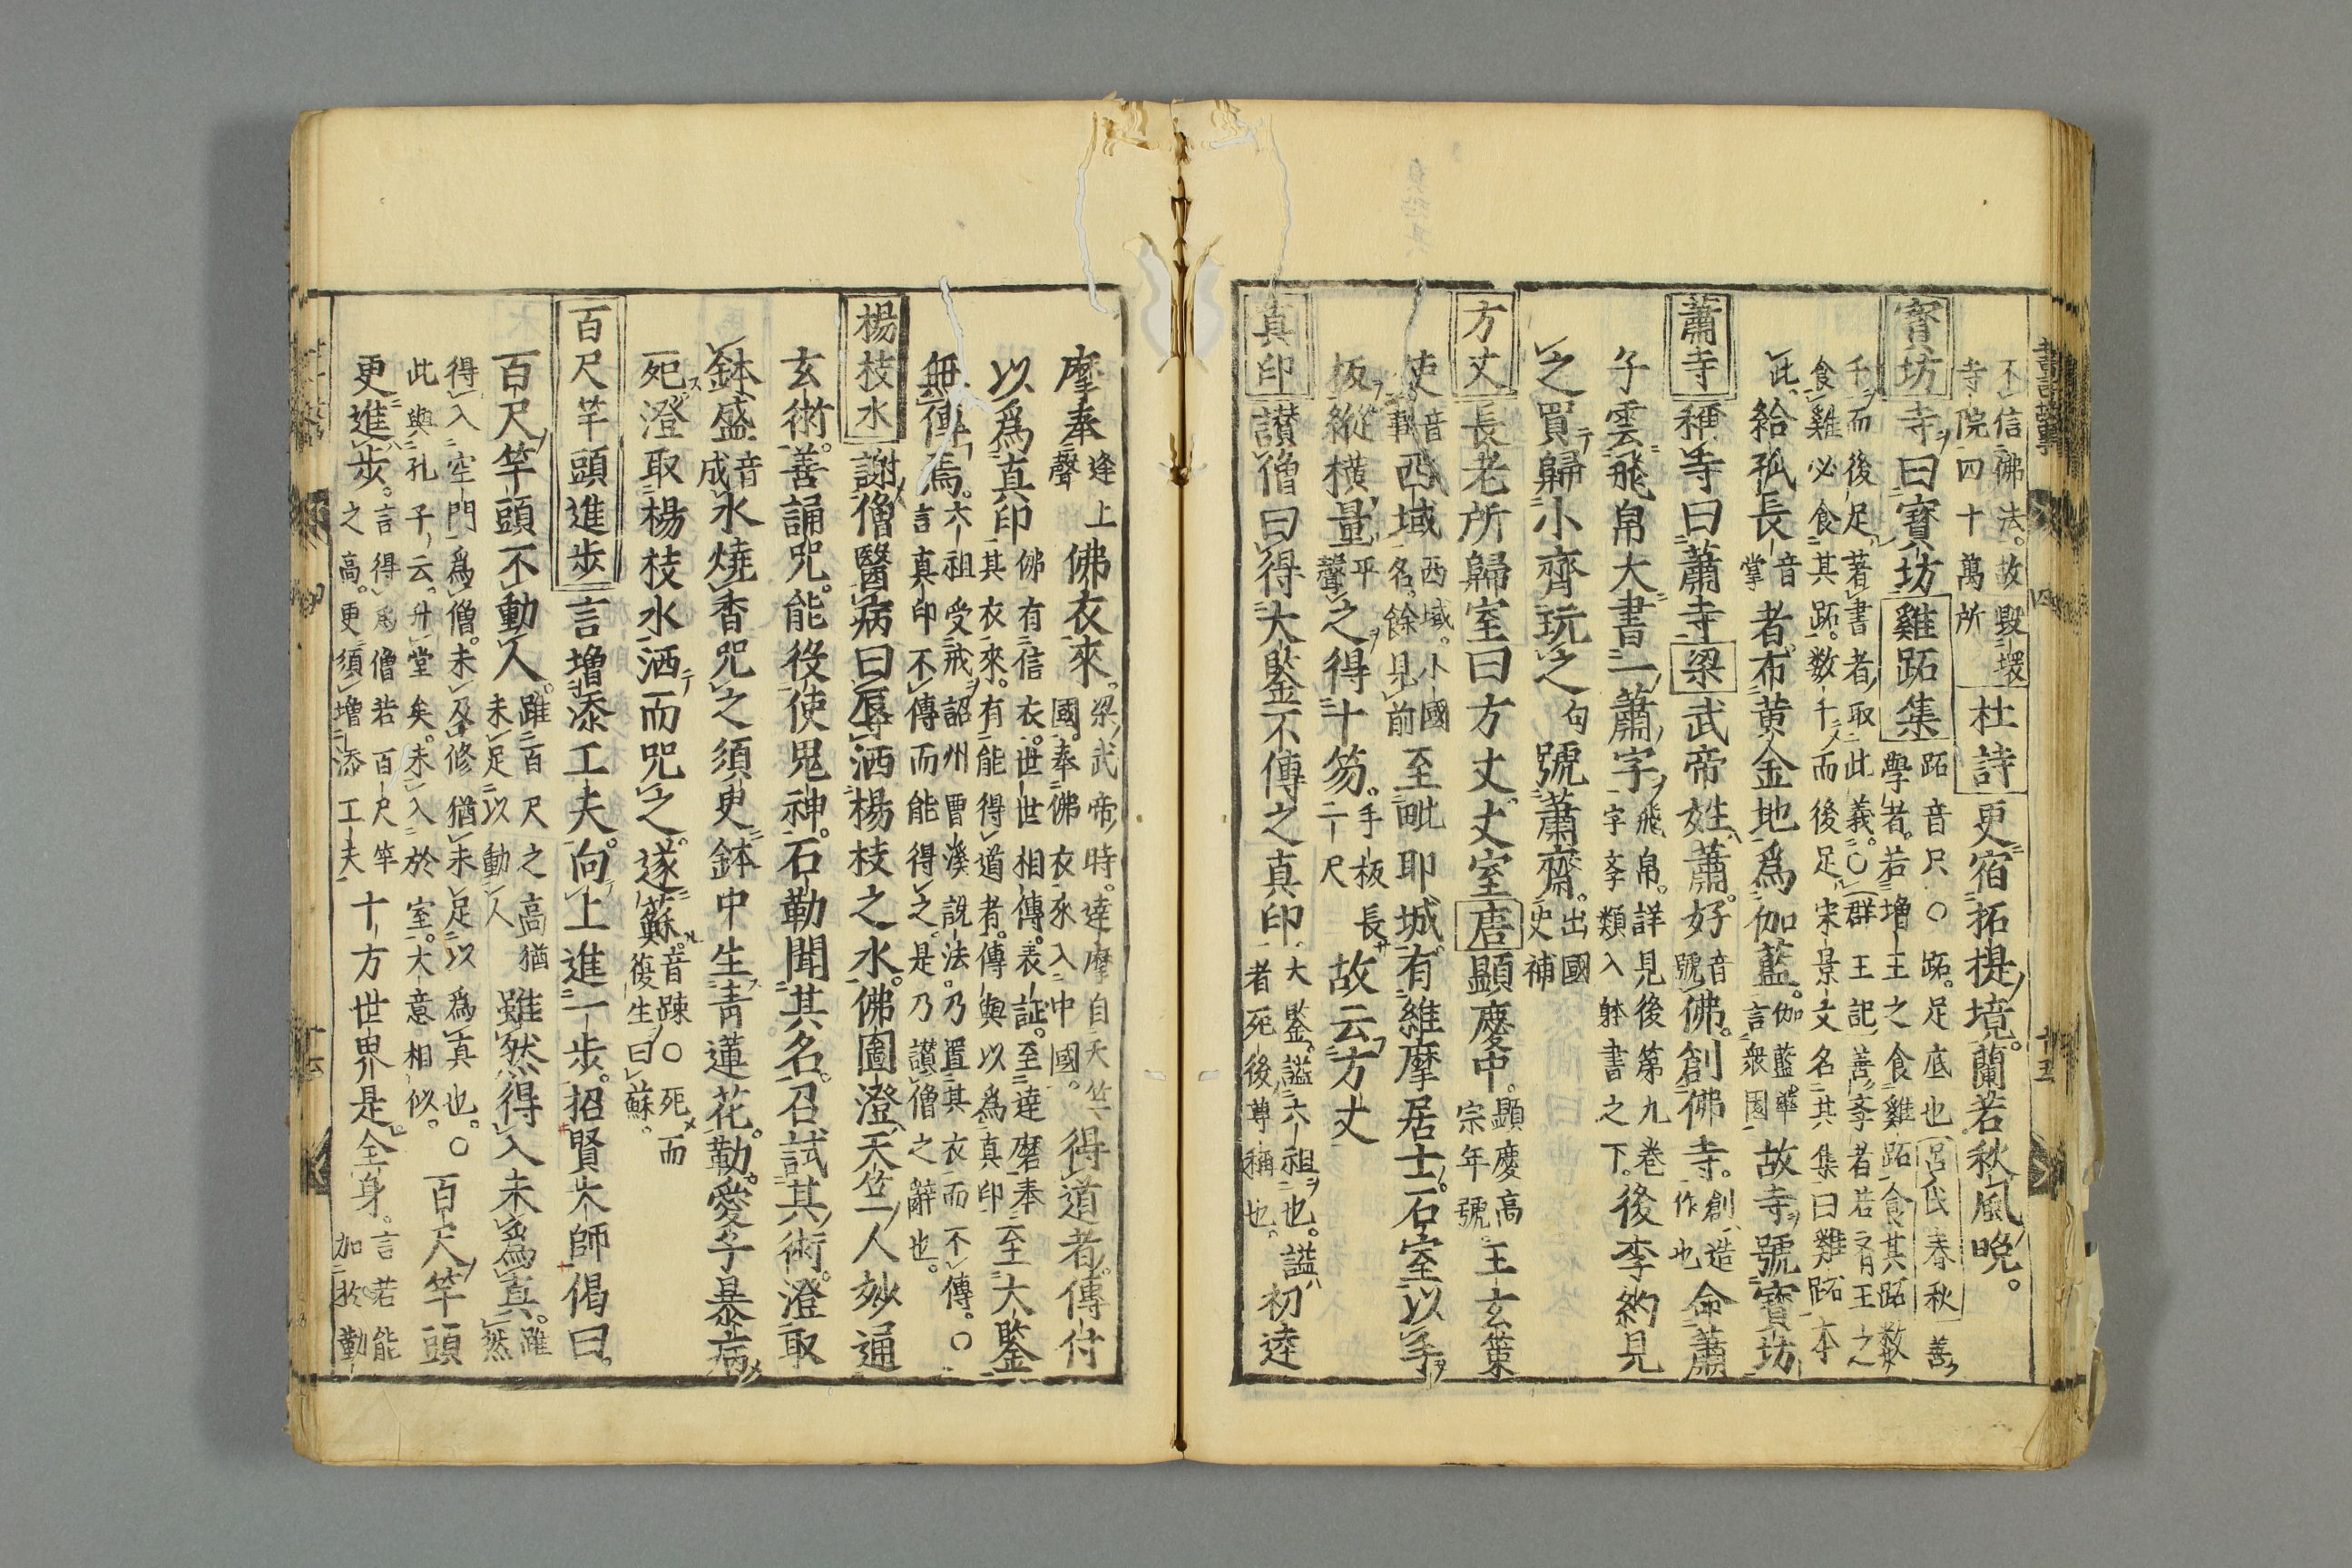 不信佛法故毀壞
寺院四十萬所
杜詩更宿拓提境蘭若秋風晚
寶坊寺曰寶坊雞跖集
跖音尺○跖足底也呂氏春秋善
學者若増王之食雞跖食其跖數
千而後足著書者取此義○群王記善斈者若斉王之
食雞必食其跖数千而後足宋景文名其集曰雞跖本
此給孤長音掌者布黄金地爲伽藍伽藍華言衆園故寺號寶坊
蕭寺稱寺曰蕭寺梁武帝姓蕭好音號佛創佛寺創造作也命蕭
子雲飛帛大書一蕭字飛帛詳見後第九卷字斈類入躰書之下後李約見
之買歸小齊玩之句號蕭齋出國史補
方丈長老所歸室曰方丈丈室唐顯慶中顯慶高宗年號王玄策
使音事西域西域小國名餘見前至毗耶城有維摩居士石室以手
板縱横量平聲之得十笏手板長二尺故云方丈
真印讃僧曰得大鑒不傳之真印大鑒謚六祖也謚者死後尊稱也初逵
摩奉逢上聲佛衣來梁武帝時達摩自天竺國奉佛衣來入中國得道者傳付
以爲真印佛有信衣世世相傳表証至達磨奉其衣來有能得道者傳與以爲真印至大鑒
無傳焉六祖受戒詔州曹溪説法乃置其衣而不傳○言真印不傳而能得之是乃讃僧之辭也
楊枝水謝僧醫病曰辱洒楊枝之水佛圖澄天竺人妙通
玄術善誦咒能役使鬼神石勒聞其名召試其術澄取
鉢盛音成水燒香咒之須臾鉢中生青蓮花勒愛子暴病
死澄取楊枝水洒而咒之遂蘇音踈○死而復生曰蘇
百尺竿頭進步言增添工夫向上進一步招賢大師偈曰
百尺竿頭不動人雖百尺之高猶未足以動人雖然得入未爲真雖然
得入空門爲僧未及修猶未足以爲真也○
此與孔子云升堂矣未入於室大意相似百尺竿頭
更進步言得爲僧若百尺竿之高更須増添工夫十方世界是全身言若能加於勤